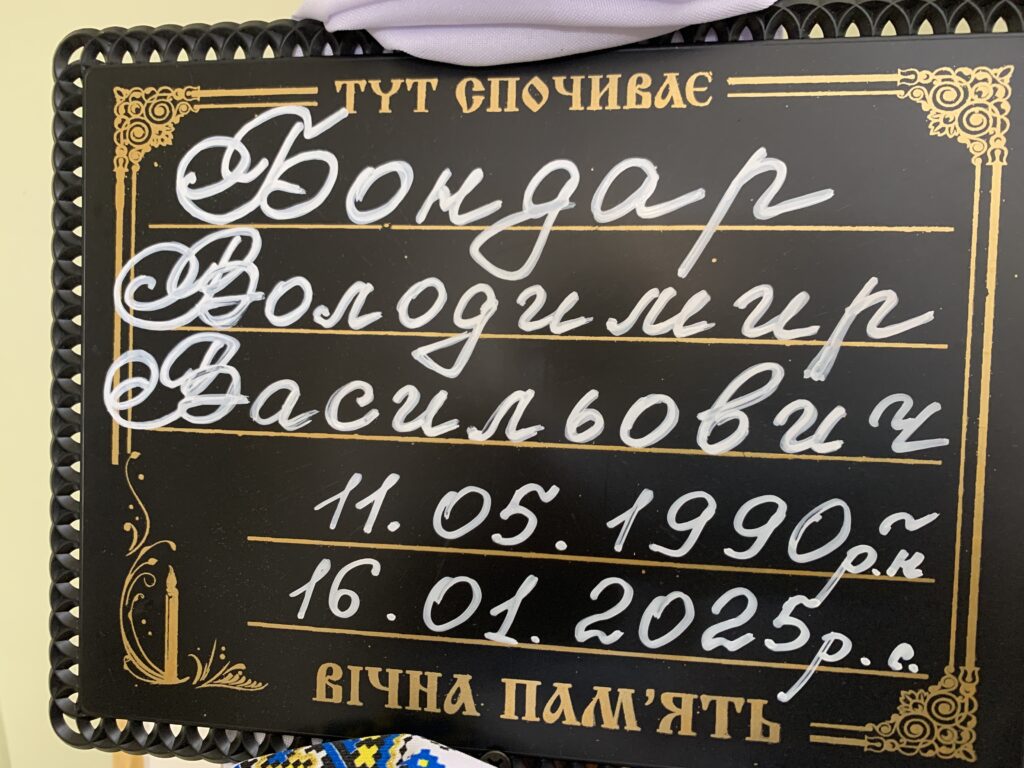 ТУТ СПОЧИВАЄ
Бондар
Володимир
Васильович
11.05.1990р.н
16.01.2025р.с.
ВІЧНА ПАМ'ЯТЬ